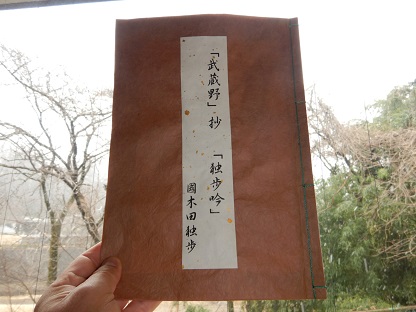 「武蔵野」抄　「独歩吟」
國木田独歩